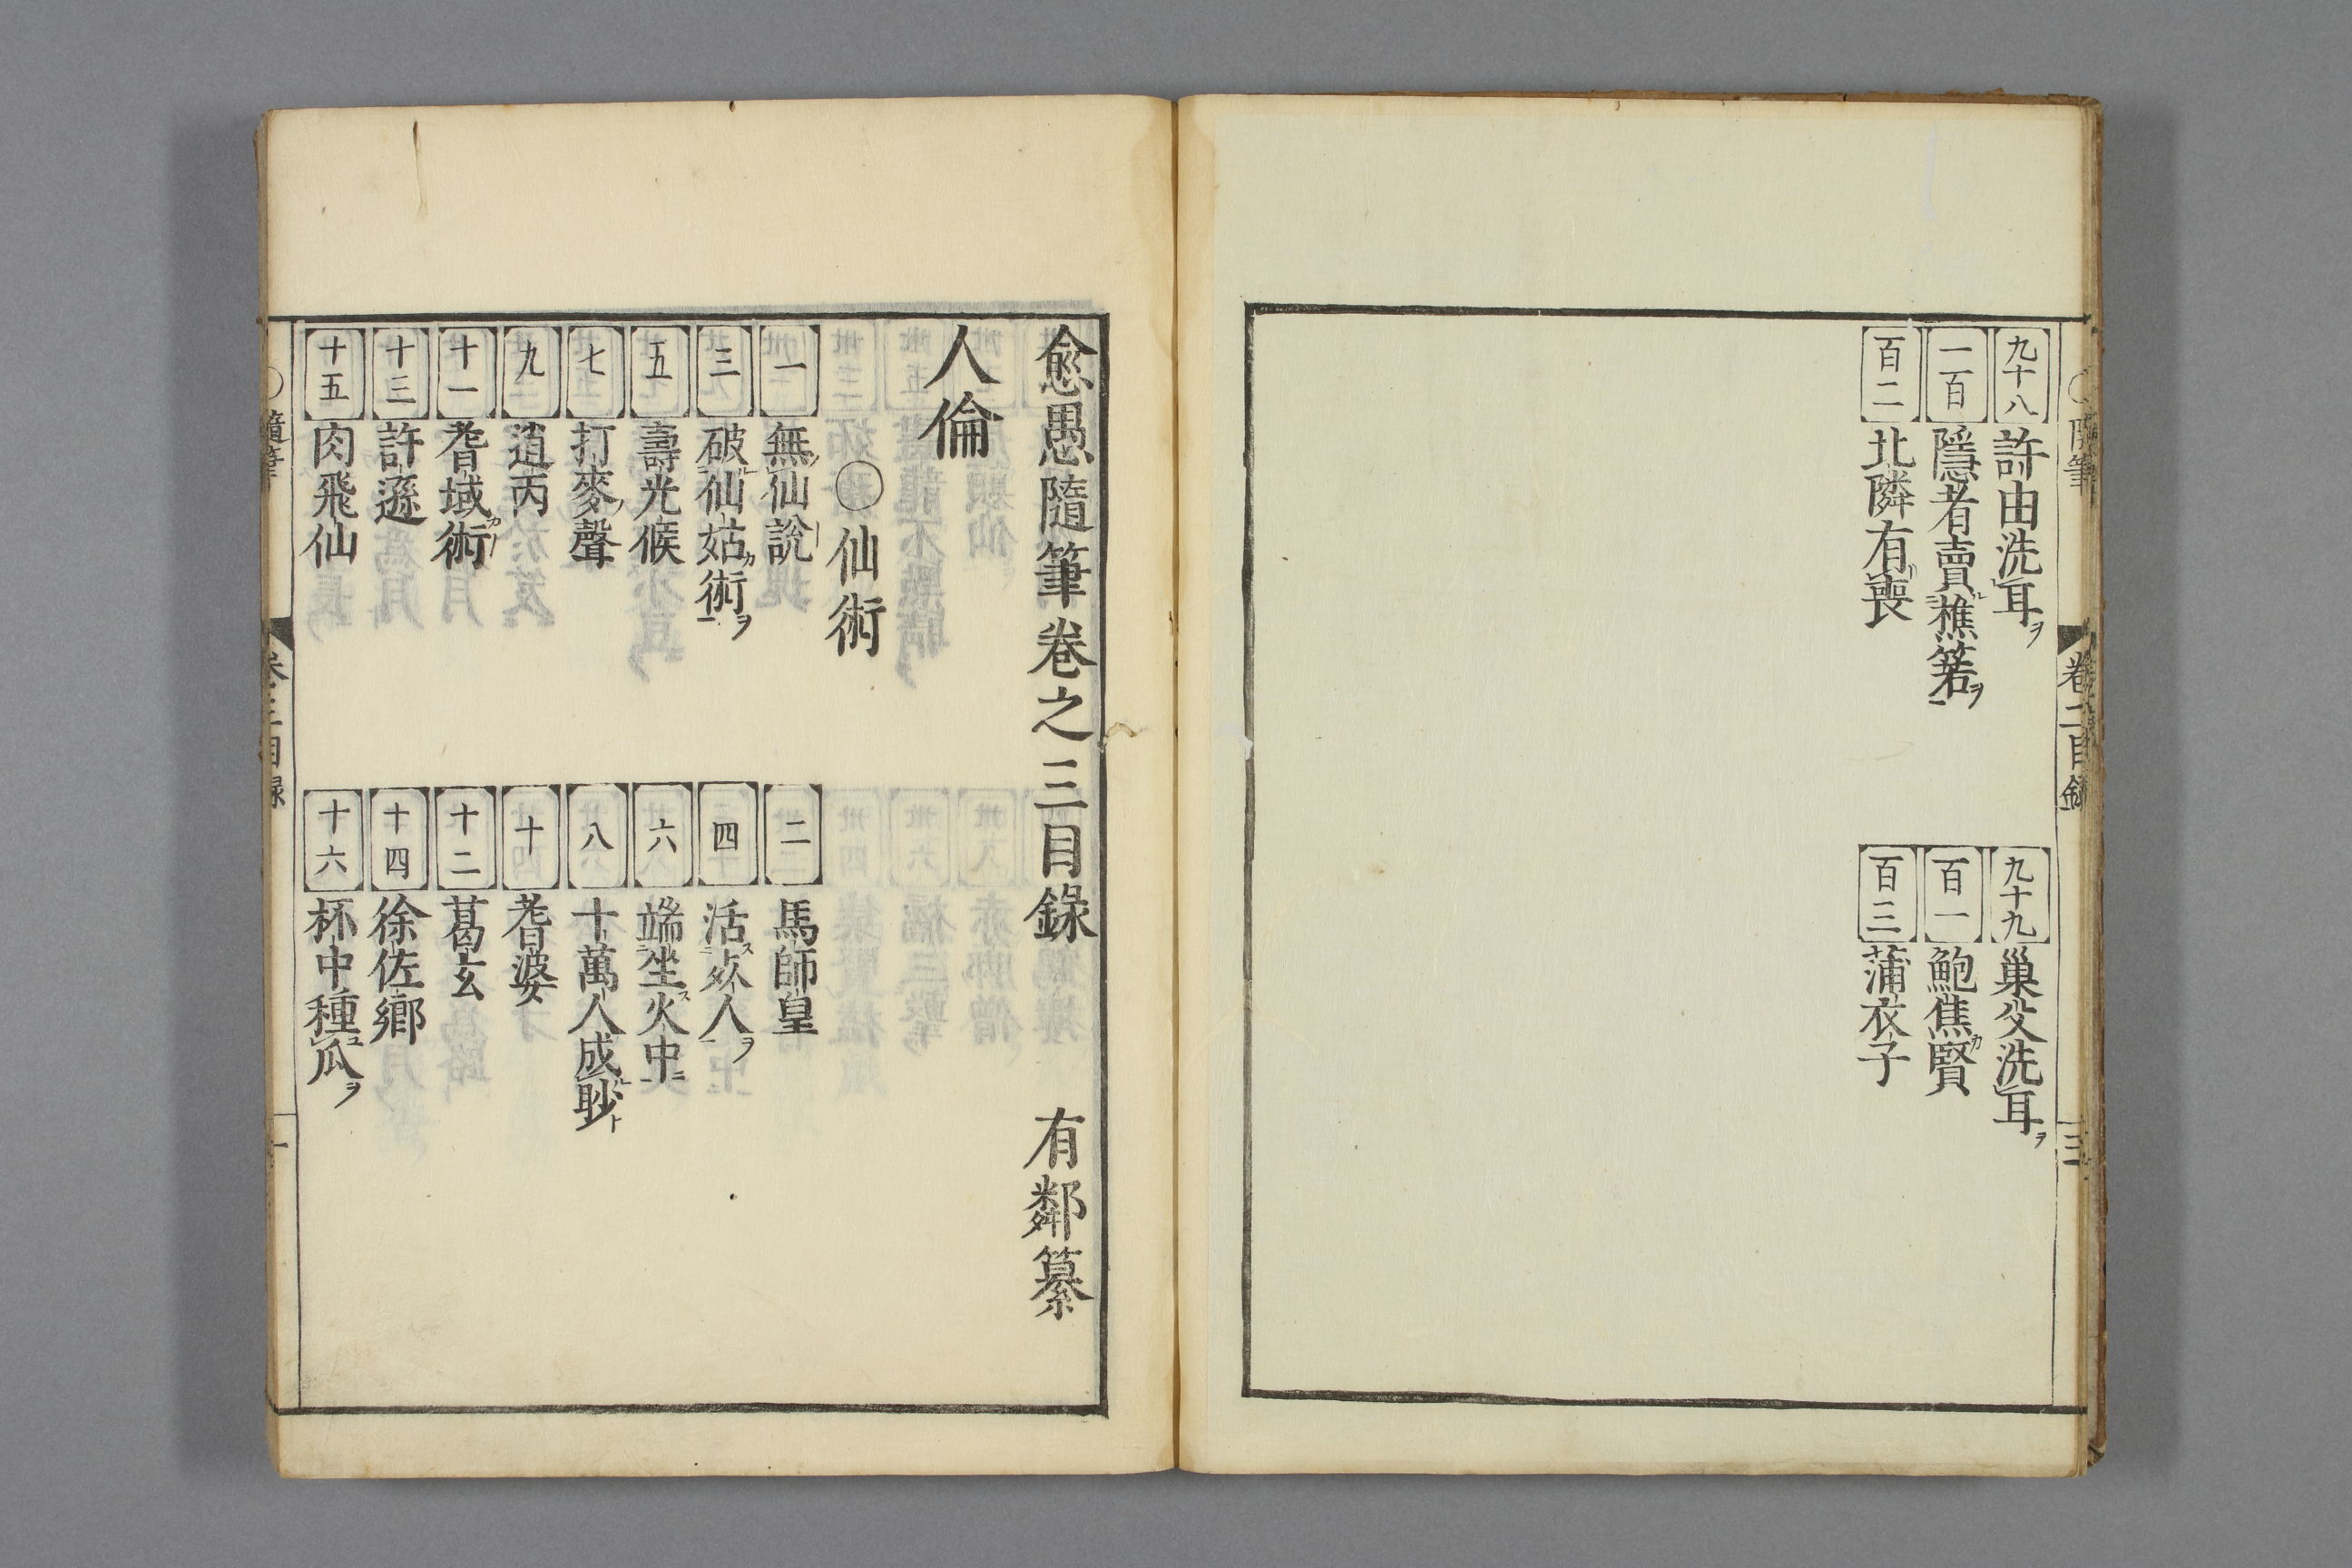 九十八 許由洗耳ヲ
九十九 巢父洗耳ヲ
一百 隱者賣樵箬ヲ
百一 鮑焦カ賢
百二 北隣有喪
百三 蒲衣子
卷二目錄 三
愈愚隨筆卷之三目錄 有鄰纂
人倫
○仙術
一 無仙說
二 馬師皇
三 破仙姑カ術ヲ
四 活ス死人ヲ
五 壽光候
六 端坐ス火中ニ
七 打麥ノ聲
八 十萬人成
九 逍丙
十 耆婆
十一 耆域カ術
十二 葛玄
十三 許遜
十四 徐佐鄉
十五 肉飛仙
十六 杯中種ユ瓜ヲ
○隨筆 卷三目錄 一